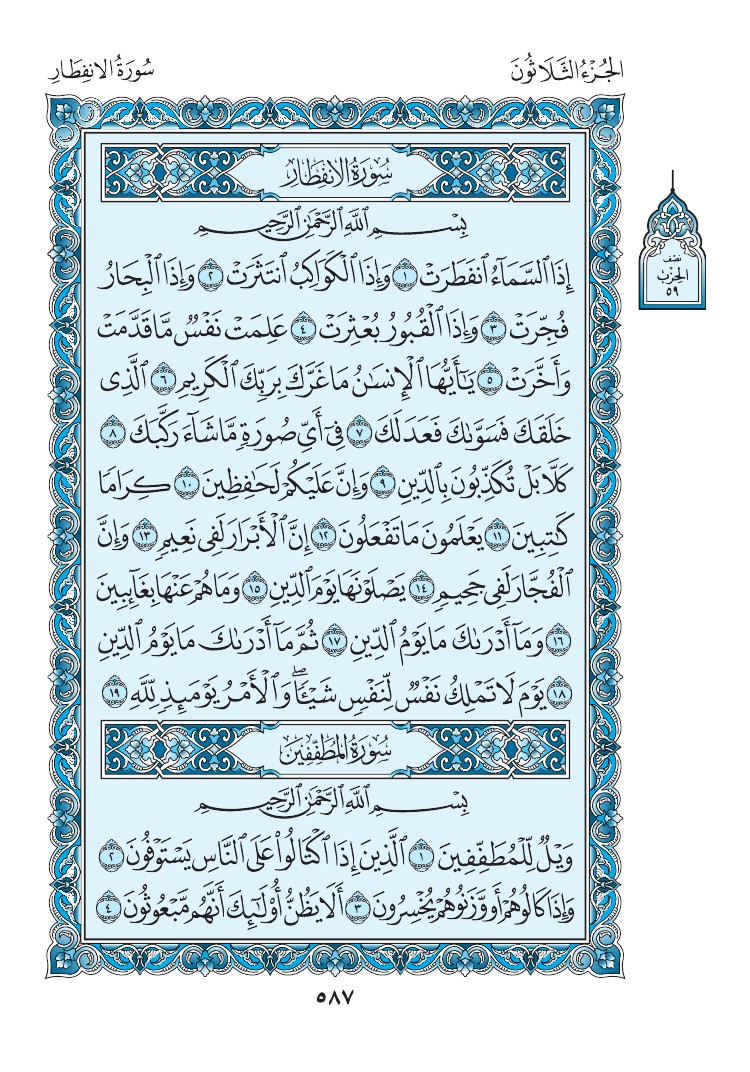 الجُزْءُ الثَّلَاثُونَ
سُورَةُ الانفِطَارِ
سُورَةُ الانفِطَارِ
بِسۡمِ ٱللَّهِ ٱلرَّحۡمَٰنِ ٱلرَّحِيمِ
إِذَا ٱلسَّمَآءُ ٱنفَطَرَتۡ ١ وَإِذَا ٱلۡكَوَاكِبُ ٱنتَثَرَتۡ ٢ وَإِذَا ٱلۡبِحَارُ
فُجِّرَتۡ ٣ وَإِذَا ٱلۡقُبُورُ بُعۡثِرَتۡ ٤ عَلِمَتۡ نَفۡسٞ مَّا قَدَّمَتۡ
وَأَخَّرَتۡ ٥ يَٰٓأَيُّهَا ٱلۡإِنسَٰنُ مَا غَرَّكَ بِرَبِّكَ ٱلۡكَرِيمِ ٦ ٱلَّذِي
خَلَقَكَ فَسَوَّىٰكَ فَعَدَلَكَ ٧ فِيٓ أَيِّ صُورَةٖ مَّا شَآءَ رَكَّبَكَ ٨
كَلَّا بَلۡ تُكَذِّبُونَ بِٱلدِّينِ ٩ وَإِنَّ عَلَيۡكُمۡ لَحَٰفِظِينَ ١٠ كِرَامٗا
كَٰتِبِينَ ١١ يَعۡلَمُونَ مَا تَفۡعَلُونَ ١٢ إِنَّ ٱلۡأَبۡرَارَ لَفِي نَعِيمٖ ١٣ وَإِنَّ
ٱلۡفُجَّارَ لَفِي جَحِيمٖ ١٤ يَصۡلَوۡنَهَا يَوۡمَ ٱلدِّينِ ١٥ وَمَا هُمۡ عَنۡهَا بِغَآئِبِينَ
١٦ وَمَآ أَدۡرَىٰكَ مَا يَوۡمُ ٱلدِّينِ ١٧ ثُمَّ مَآ أَدۡرَىٰكَ مَا يَوۡمُ ٱلدِّينِ
١٨ يَوۡمَ لَا تَمۡلِكُ نَفۡسٞ لِّنَفۡسٖ شَيۡـٔٗاۖ وَٱلۡأَمۡرُ يَوۡمَئِذٖ لِّلَّهِ ١٩
سُورَةُ المُطَفِّفِينَ
بِسۡمِ ٱللَّهِ ٱلرَّحۡمَٰنِ ٱلرَّحِيمِ
وَيۡلٞ لِّلۡمُطَفِّفِينَ ١ ٱلَّذِينَ إِذَا ٱكۡتَالُواْ عَلَى ٱلنَّاسِ يَسۡتَوۡفُونَ ٢
وَإِذَا كَالُوهُمۡ أَو وَّزَنُوهُمۡ يُخۡسِرُونَ ٣ أَلَا يَظُنُّ أُوْلَٰٓئِكَ أَنَّهُم مَّبۡعُوثُونَ ٤
نصف
الحِزْب
٥٩
٥٨٧